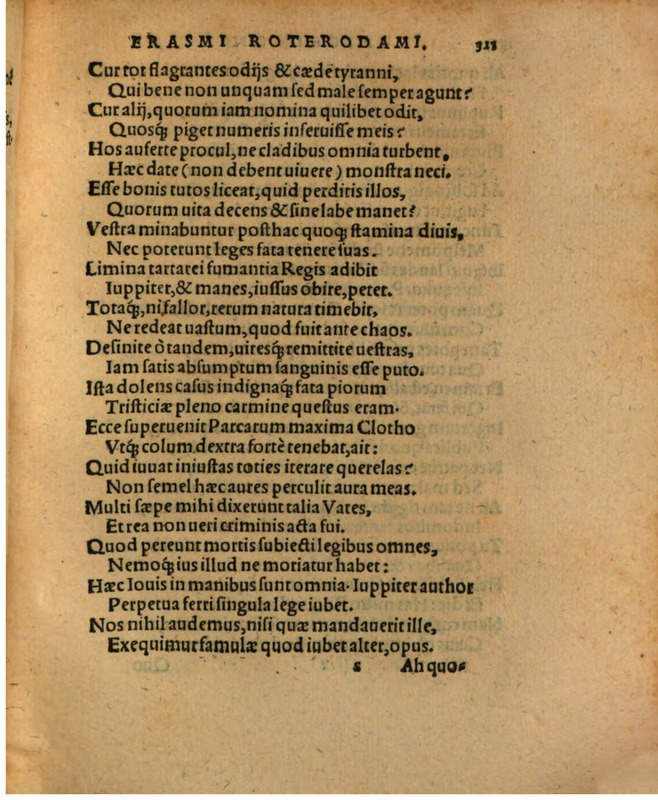 ERASMI ROTERODAMI. 321
Cur tot flagrantes odijs & cæde tyranni,
Qui bene non unquam sed male semper agunt?
Cur alij, quorum iam nomina quilibet odit,
Quosq́; piget numeris inseruisse meis?
Hos auferte procul, ne cladibus omnia turbent,
Hæc date (non debent uiuere) monstra neci.
Esse bonis tutos liceat, quid perditis illos,
Quorum uita decens & sine labe manet?
Vestra minabuntur posthac quoq; stamina diuis,
Nec poterunt leges fata tenere suas.
Limina tartarei fumantia Regis adibit
Iuppiter, & manes, iussus obire, petet.
Totaq́;, ni fallor, rerum natura timebit,
Ne redeat uastum, quod fuit ante chaos.
Desinite ò tandem, uiresq́; remittite uestras,
Iam satis absumptum sanguinis esse puto.
Ista dolens casus indignaq́; fata piorum
Tristiciæ pleno carmine questus eram.
Ecce superuenit Parcarum maxima Clotho
Vtq́; colum dextra fortè tenebat, ait:
Quid iuuat iniustas toties iterare querelas?
Non semel hæc aures perculit aura meas.
Multi sæpe mihi dixerunt talia Vates,
Et rea non ueri criminis acta fui.
Quod pereunt mortis subiecti legibus omnes,
Nemoq́; ius illud ne moriatur habet:
Hæc Iouis in manibus sunt omnia. Iuppiter author
Perpetua ferri singula lege iubet.
Nos nihil audemus, nisi quæ mandauerit ille,
Exequimur famulæ quod iubet alter, opus.
s Ah quo-